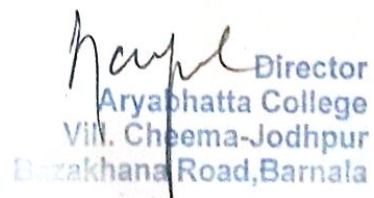 Director
Aryabhatta College
Vill. Cheema-Jodhpur
Bazakhana Road,Barnala